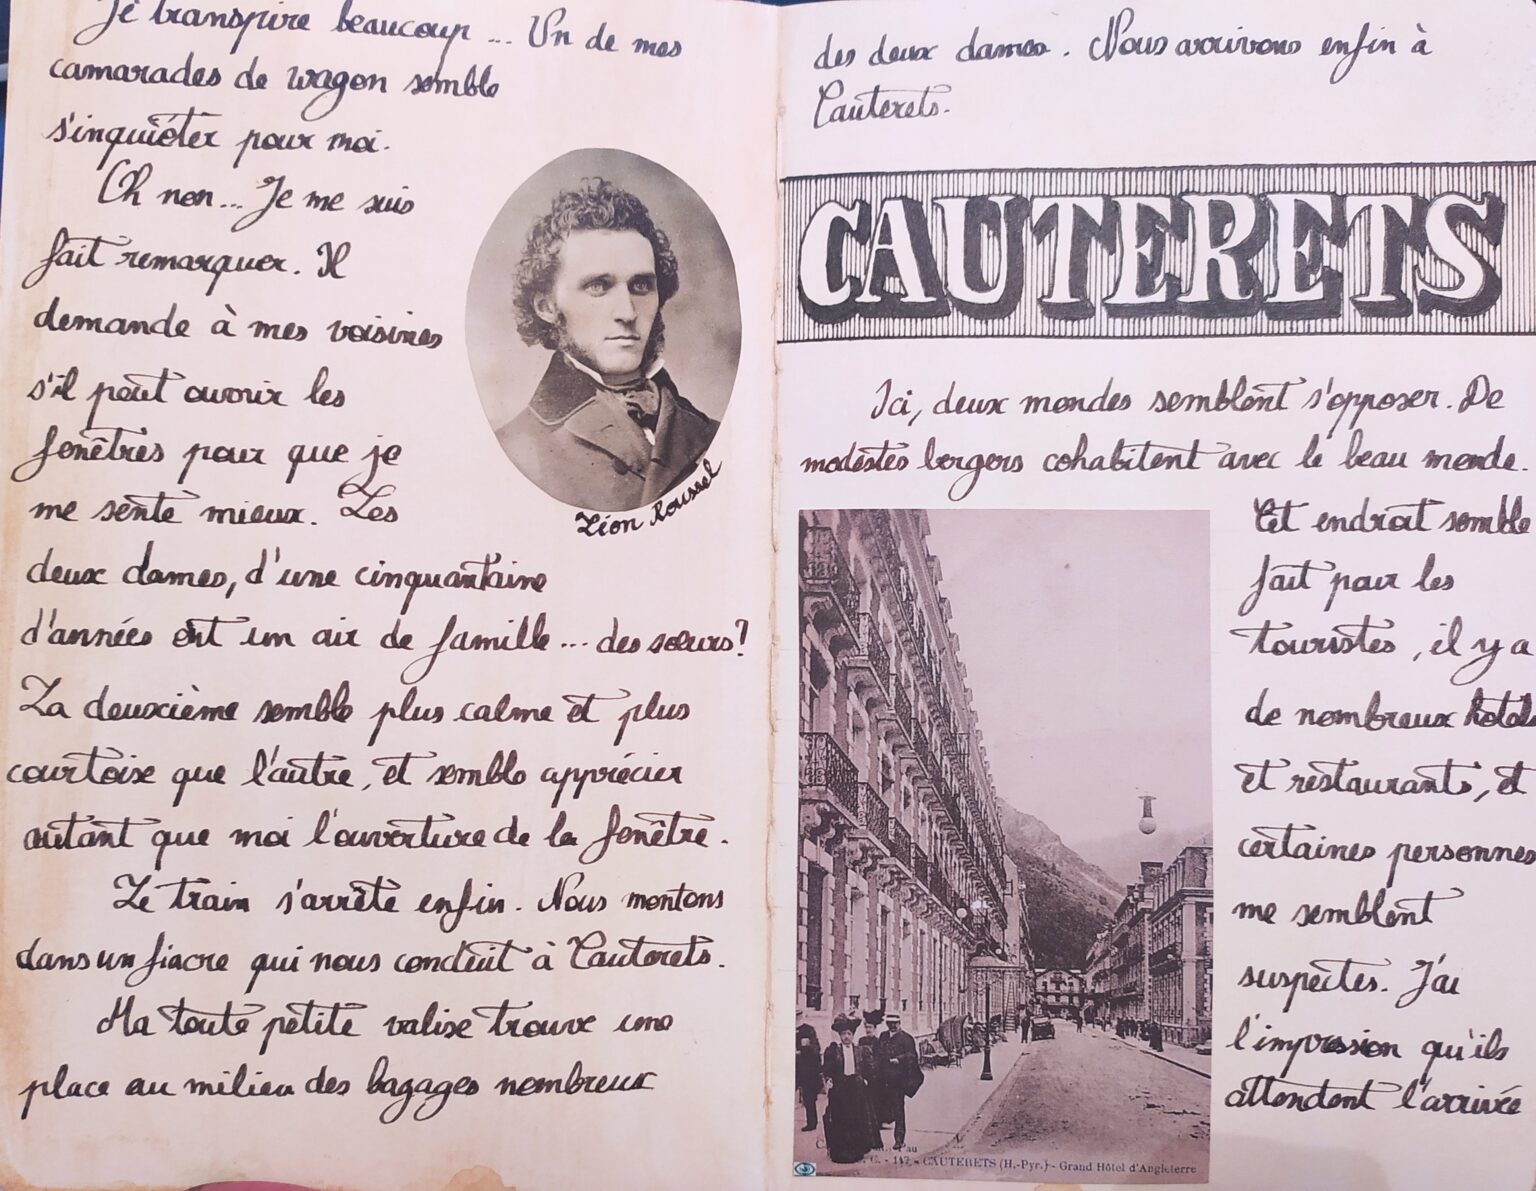 Je transpire beaucoup ... Un de mes
camarades de wagon semble
s'inquiéter pour moi.
Oh non... Je me suis
fait remarquer. Il
demande à mes voisines
s'il peut ouvrir les
fenêtres pour que je
me sente mieux. Les
deux dames, d'une cinquantaine
d'années ont un air de famille... des sœurs?
La deuxième semble plus calme et plus
courtoise que l'autre, et semble apprécier
autant que moi l'ouverture de la fenêtre.
Le train s'arrête enfin. Nous montons
dans un fiacre qui nous conduit à Cauterets.
Ma toute petite valise trouve une
place au milieu des bagages nombreux
Léon Roussel
des deux dames. Nous arrivons enfin à
Cauterets.
CAUTERETS
Ici, deux mondes semblent s'opposer. De
modestes bergers cohabitent avec le beau monde.
Cet endroit semble
fait pour les
touristes, il y a
de nombreux hotels
et restaurants, et
certaines personnes
me semblent
suspectes. J'ai
l'impression qu'ils
attendent l'arrivée
C. - 117 - CAUTERETS (H.-Pyr.) - Grand Hôtel d'Angleterre